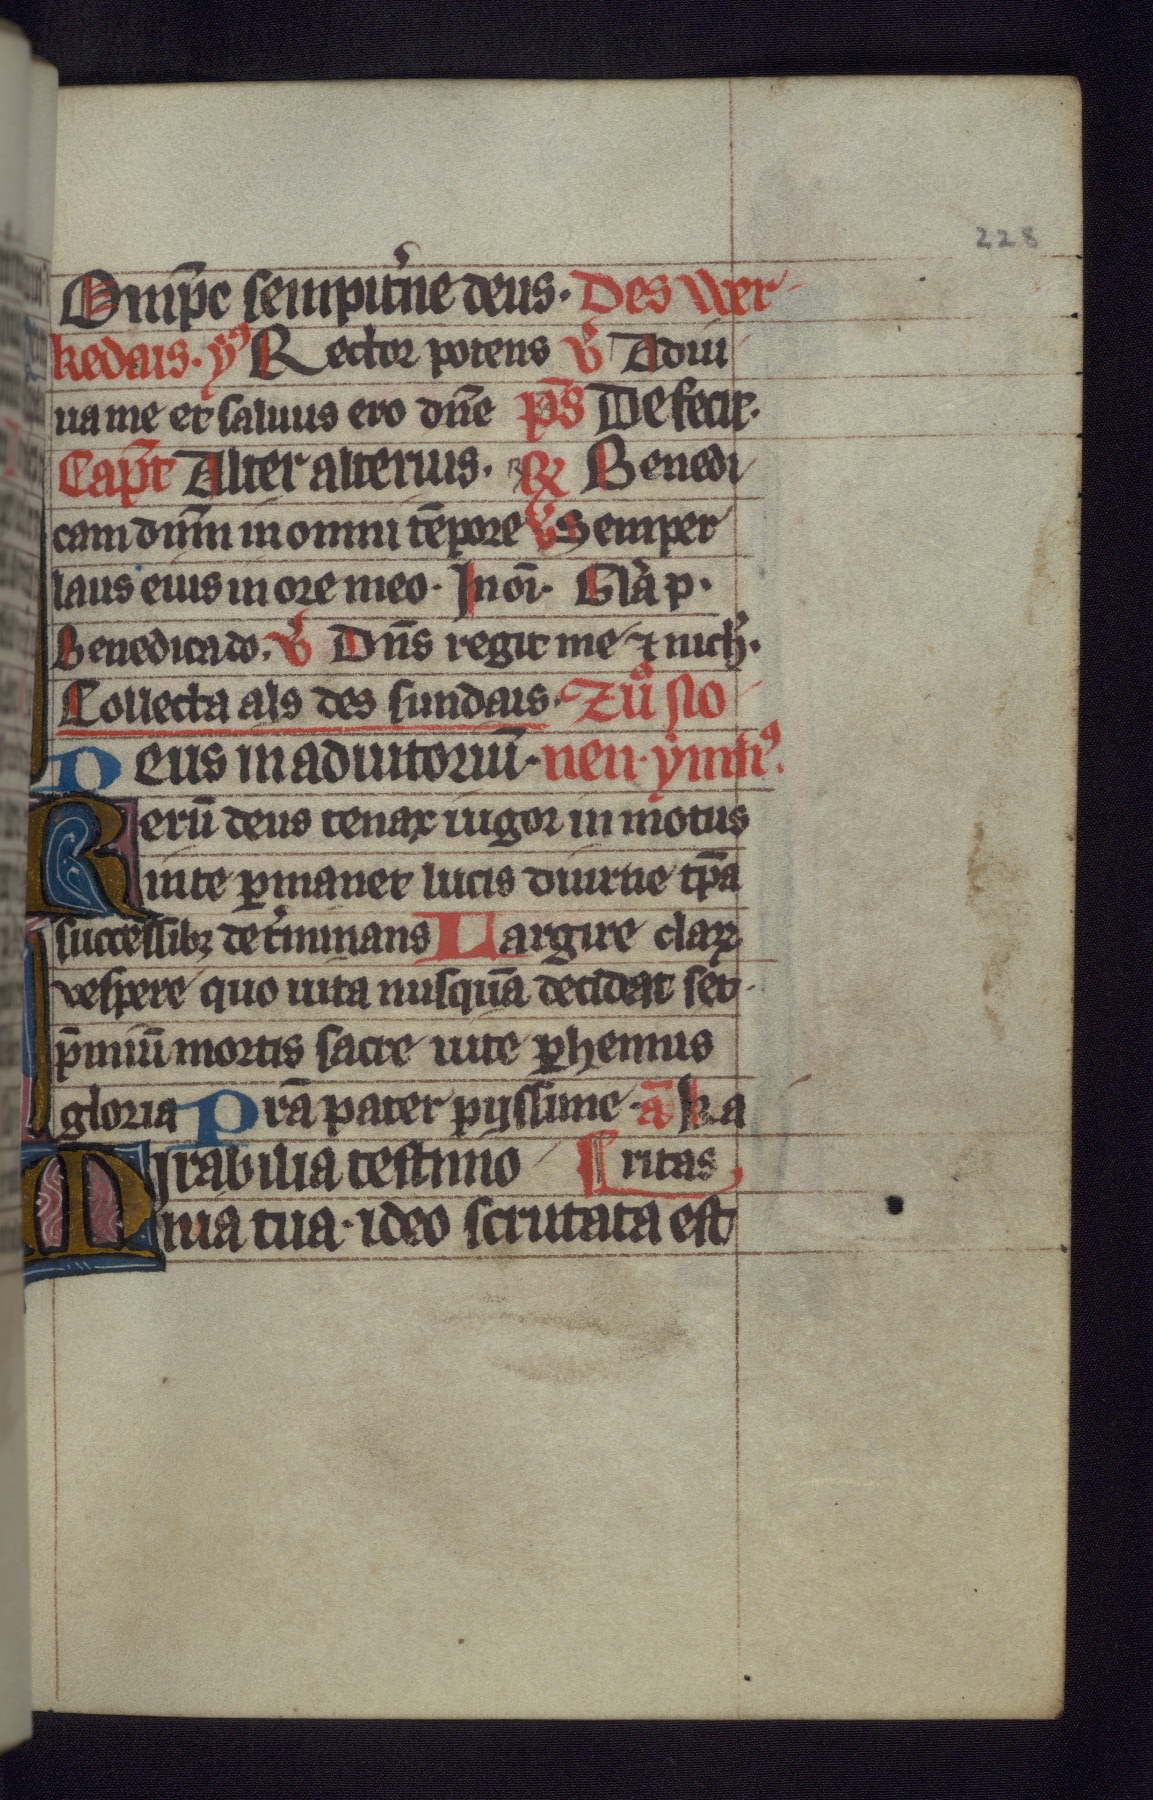 228
Omīpc sempit'ne deus. Des wer
kedais. yꝰ Rector potens v̄ Adiu
ua me et saluus ero dn̄e p̄s Defecit.
Cap̄t Alter alterius. ℟ Benedi
cam dnm̄ in omni tēpore v̄s Semper
laus eius in ore meo. In oī. Glā p.
Benedicā do. v̄ Dn̄s regit me ⁊ nich̄.
Collecta als des sundais. Zuͦ no
Deus in adiutoriū. nen. ymnꝰ.
Rerū deus tenax uigor in motus
in te ꝑmanet lucis diurne tp̄a
successibꝫ det'minans Largire claꝝ
vespere quo uita nusquā decidat set
p̄miū mortis sacre uite ꝑhennus
gloria Prā pater pijssime ā Ka
Mirabilia testimo ritas
nia tua. ideo scrutata est